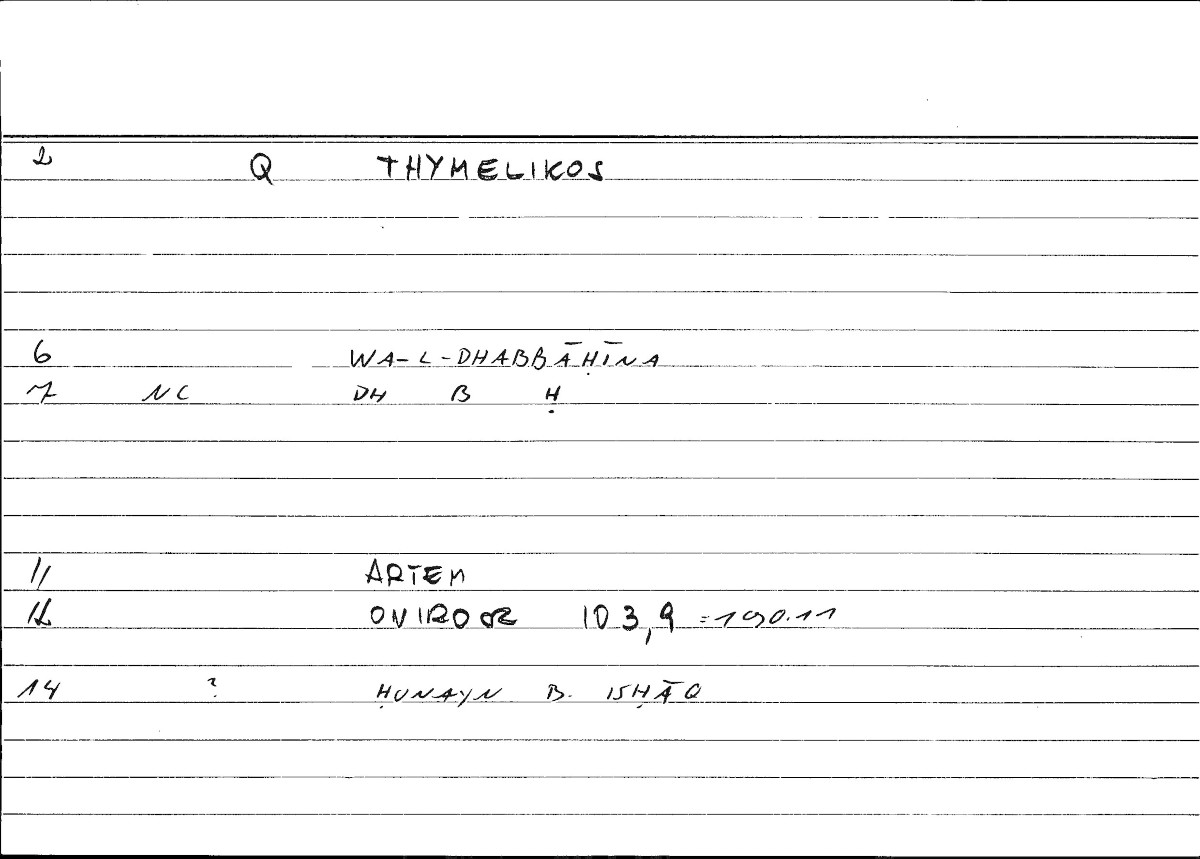 2 Q THYMELIKOS
6 WA-L-DHABBĀḤĪNA
7 NC DH B Ḥ
11 ARTEM
12 ONIROCR 103,9 =190.11
14 ? ḤUNAYN B. ISḤĀQ